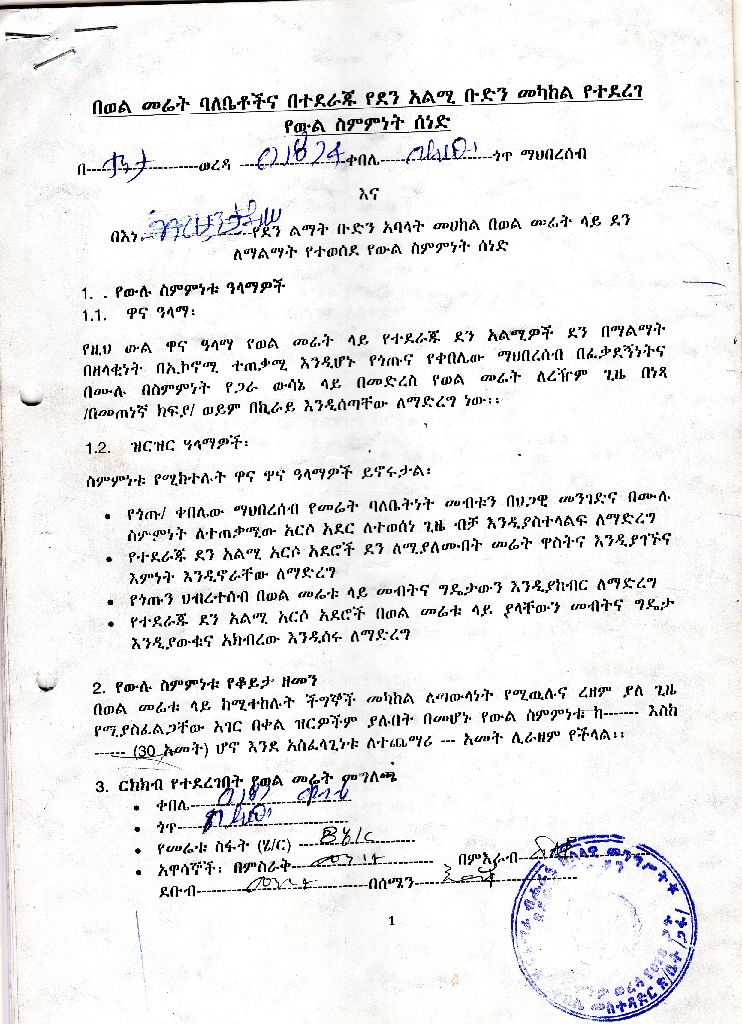 በወል መሬት ባለቤቶችና በተደራጁ የደን አልሚ ቡድን መካከል የተደረገ
የውል ስምምነት ሰነድ
በ---ቋራ---ወረዳ ---ቀበሌ---ጎጥ ማህበረሰብ
እና
በእነ---የደን ልማት ቡድን አባላት መሀከል በወል መሬት ላይ ደን
ለማልማት የተወሰደ የውል ስምምነት ሰነድ
1. . የውሉ ስምምነቱ ዓላማዎች
1.1. ዋና ዓላማ፡
የዚህ ውል ዋና ዓላማ የወል መሬት ላይ የተደራጁ ደን አልሚዎች ደን በማልማት
በዘላቂነት በኢኮኖሚ ተጠቃሚ እንዲሆኑ የጎጡና የቀበሌው ማህበረሰብ በፈቃደኝነትና
በሙሉ በስምምነት የጋራ ውሳኔ ላይ በመድረስ የወል መሬት ለረዥም ጊዜ በነጻ
/በመጠነኛ ክፍያ/ ወይም በኪራይ እንዲሰጣቸው ለማድረግ ነው፡፡
1.2. ዝርዝር ዓላማዎች፡
ስምምነቱ የሚከተሉት ዋና ዋና ዓላማዎች ይኖሩታል፡
• የጎጡ/ ቀበሌው ማህበረሰብ የመሬት ባለቤትነት መብቱን በህጋዊ መንገድና በሙሉ
ስምምነት ለተጠቃሚው አርሶ አደር ለተወሰነ ጊዜ ብቻ እንዲያስተላልፍ ለማድረግ
• የተደራጁ ደን አልሚ አርሶ አደሮች ደን ለሚያለሙበት መሬት ዋስትና እንዲያገኙና
እምነት እንዲኖራቸው ለማድረግ
• የጎጡን ህብረተሰብ በወል መሬቱ ላይ መብትና ግዴታውን እንዲያከብር ለማድረግ
• የተደራጁ ደን አልሚ አርሶ አደሮች በወል መሬቱ ላይ ያላቸውን መብትና ግዴታ
እንዲያውቁና አክብረው እንዲሰሩ ለማድረግ
2. የውሉ ስምምነቱ የቆይታ ዘመን
በወል መሬቱ ላይ ከሚተከሉት ችግኞች መካከል ለጣውላነት የሚዉሉና ረዘም ያለ ጊዜ
የሚያስፈልጋቸው አገር በቀል ዝርዎችም ያሉበት በመሆኑ የውል ስምምነቱ ከ------- እስከ
------ (30 አመት) ሆኖ እንደ አስፈላጊነቱ ለተጨማሪ --- አመት ሊራዘም የችላል፡፡
3. ርክክብ የተደረገበት የወል መሬት መግለጫ
• ቀበሌ---
• ጎጥ---
• የመሬቱ ስፋት (ሄ/ር) ---
• አዋሳኞች፡ በምስራቅ--- በምእራብ---
ደቡብ---በሰሜን---
1